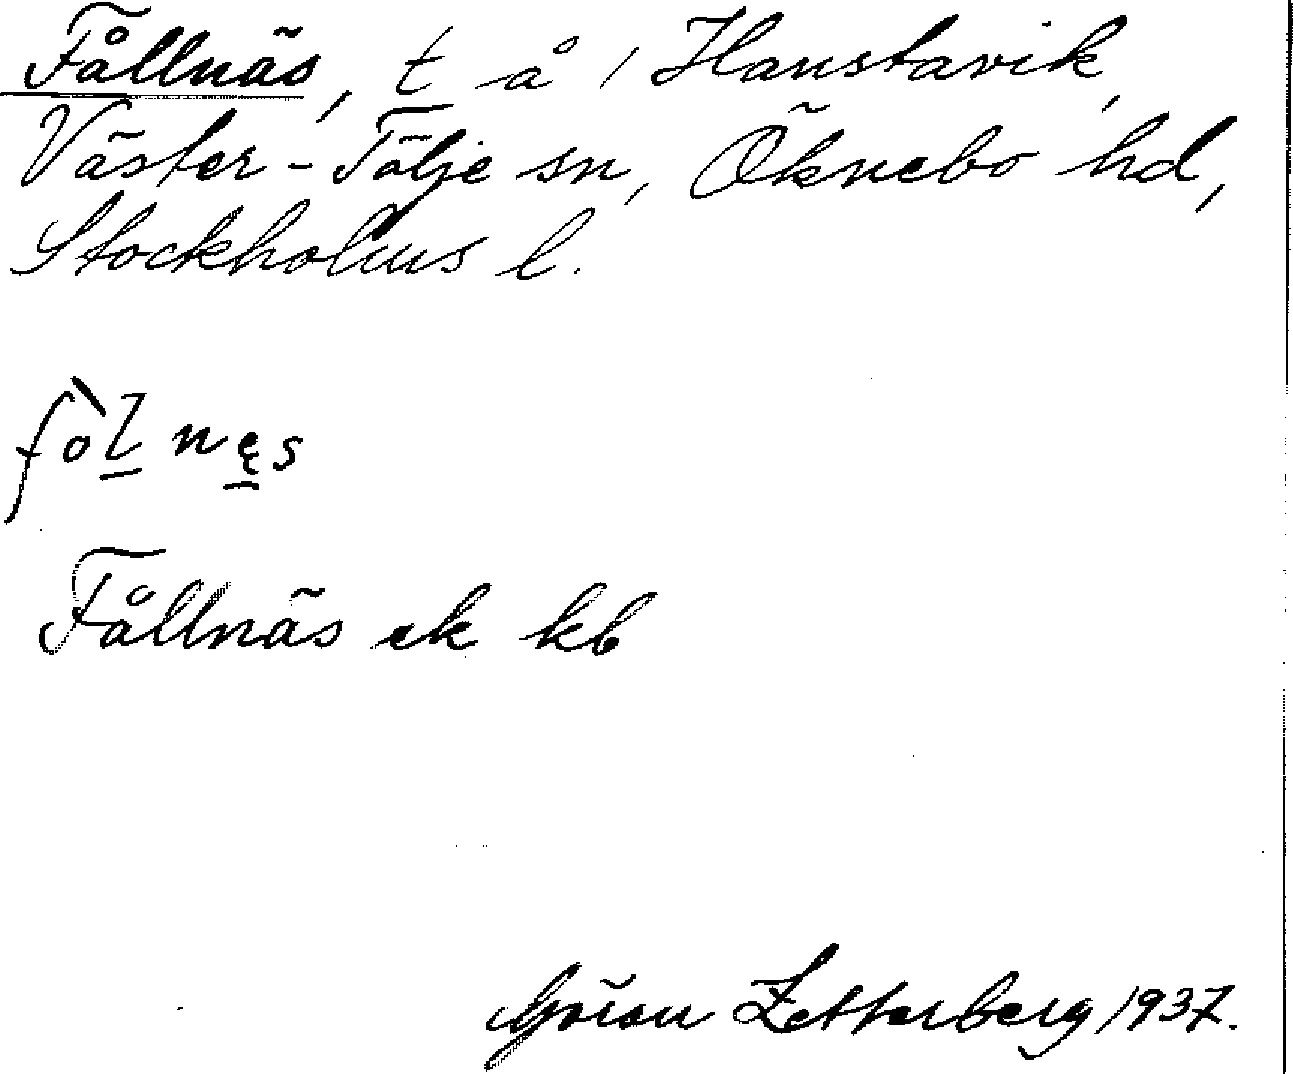 Fållnäs, t å / Hanstavik,
Väster-Tälje sn, Öknebo hd,
Stockholms l.
fòl nęs
Fållnäs ek kb
Göran Zetterberg 1937.